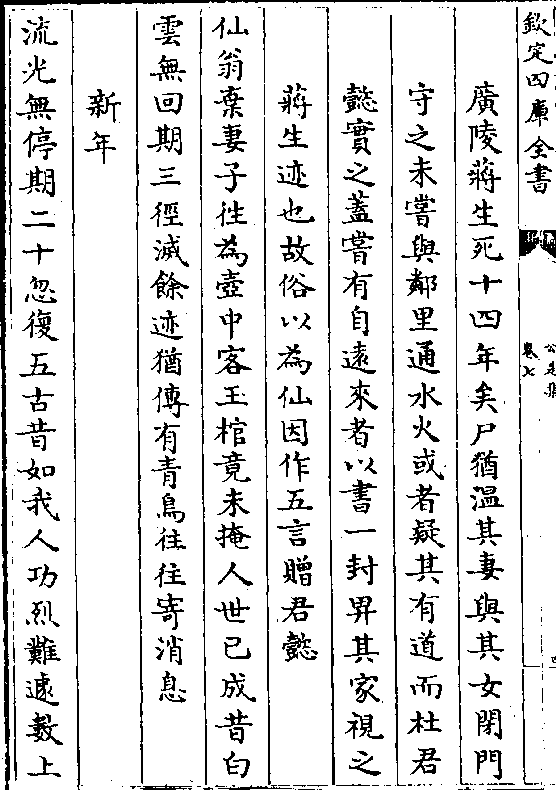 欽定四庫全書
公是集
卷七
廣陵蔣生死十四年矣尸猶溫其妻與其女閉門
守之未嘗與鄰里通水火或者疑其有道而杜君
懿實之蓋嘗有自遠來者以書一封畀其家視之
蔣生迹也故俗以為仙因作五言贈君懿
仙翁棄妻子徃為壺中客玉棺竟未掩人世已成昔白
雲無回期三徑滅餘迹猶傳有青鳥往往寄消息
新年
流光無停期二十忽復五古昔如我人功烈難遽數上